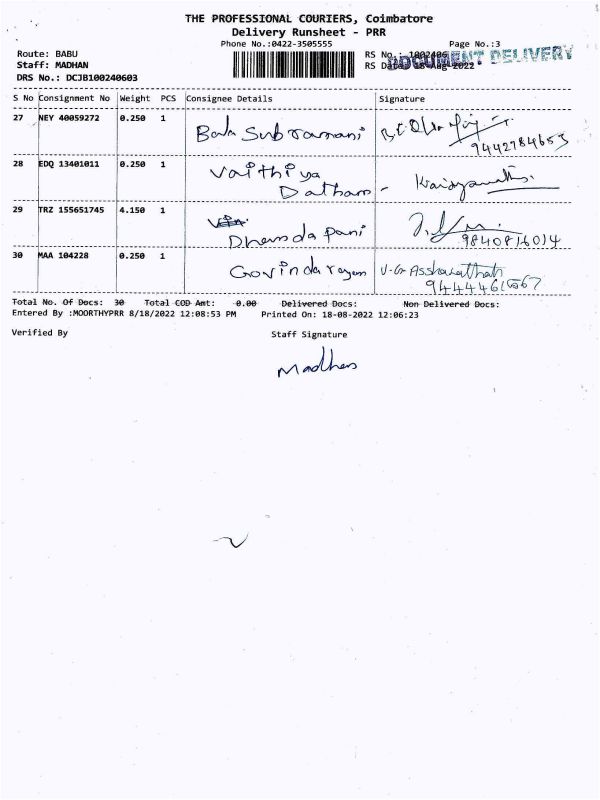 THE PROFESSIONAL COURIERS, Coimbatore
Delivery Runsheet - PRR
Phone No.:0422-3505555 Page No.:3
Route: BABU RS No.: 1002406
Staff: MADHAN RS Date: 18-Aug-2022
DOCUMENT DELIVERY
DRS No.: DCJB100240603
S No Consignment No Weight PCS Consignee Details Signature
27 NEY 40059272 0.250 1 Bala Subramani
9442784653
28 EDQ 13401011 0.250 1 Vaithiya
Datham -
29 TRZ 155651745 4.150 1
Dhamda pani 9840816014
30 MAA 104228 0.250 1 Govindarayan V.G
Total No. Of Docs: 30 Total COD Amt: 0.00 Delivered Docs: Non Delivered Docs:
Entered By :MOORTHYPRR 8/18/2022 12:08:53 PM Printed On: 18-08-2022 12:06:23
Verified By Staff Signature
Madhan